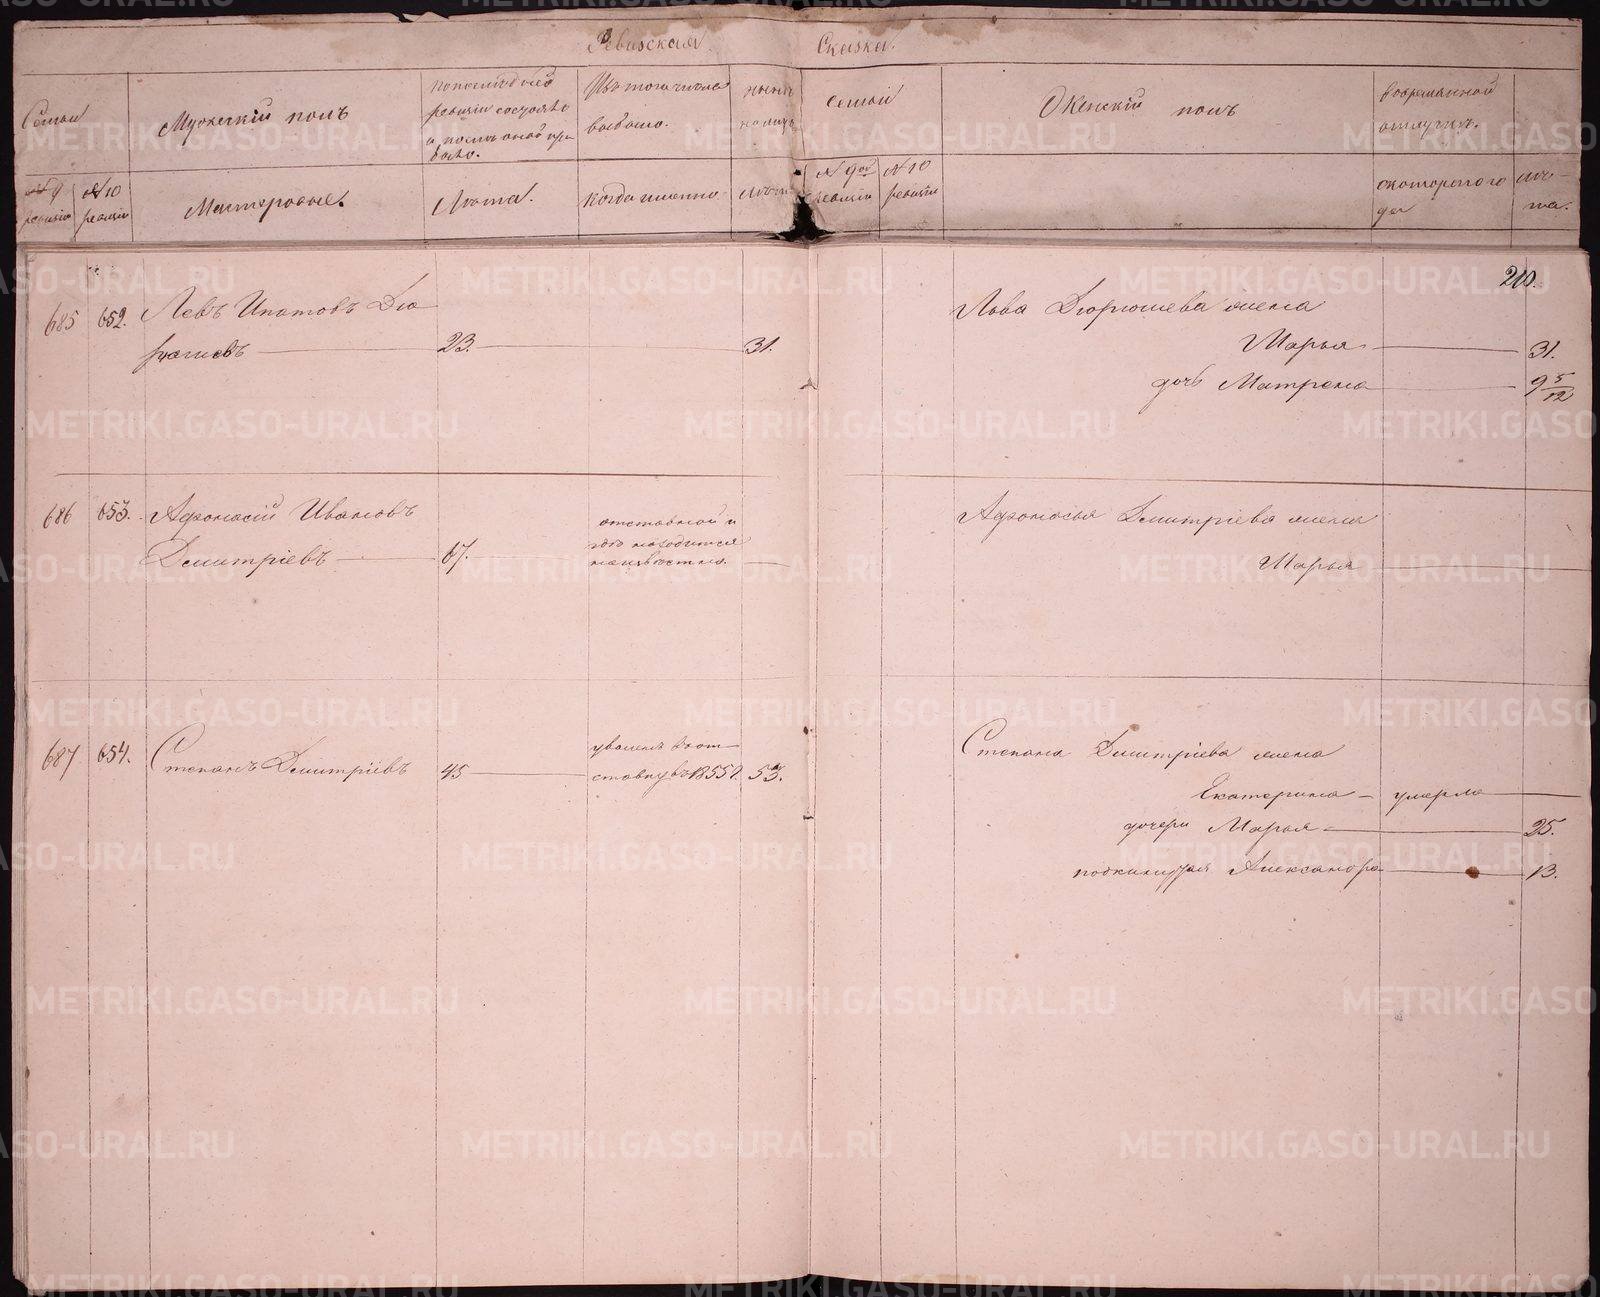 Ревизская Сказка.
Семьи
Мужескій полъ
По последней
ревизіи состояло
и после оной при
было.
Изъ того числа
выбыло.
ныне
на лицо
Семьи
Женскій полъ
Во временной
отлучкѣ.
№ 9
ревизіи
№ 10
ревизіи
Мастеровые.
Лѣта.
Когда именно
лѣта
№ 9ой
ревизіи
№ 10
ревизіи
съ котораго го
да
лѣ-
та.
210.
685 652. Левъ Ипатовъ Дю
23. 31.
Льва Дюрюшева жена
Марья 31.
дочь Матрена 9 5/12
686 653. Афонасій Ивановъ
Дмитріевъ 67.
отставной и
где находится
неизвѣстно.
Афонасья Дмитріева жена
Марья
687 654. Степанъ Дмитріевъ 45
уволенъ въ от
ставку въ 1855 г. 53.
Степана Дмитріева жена
Екатерина умерла
дочери Марья 25.
Александра 13.
METRIKI.GASO-URAL.RU